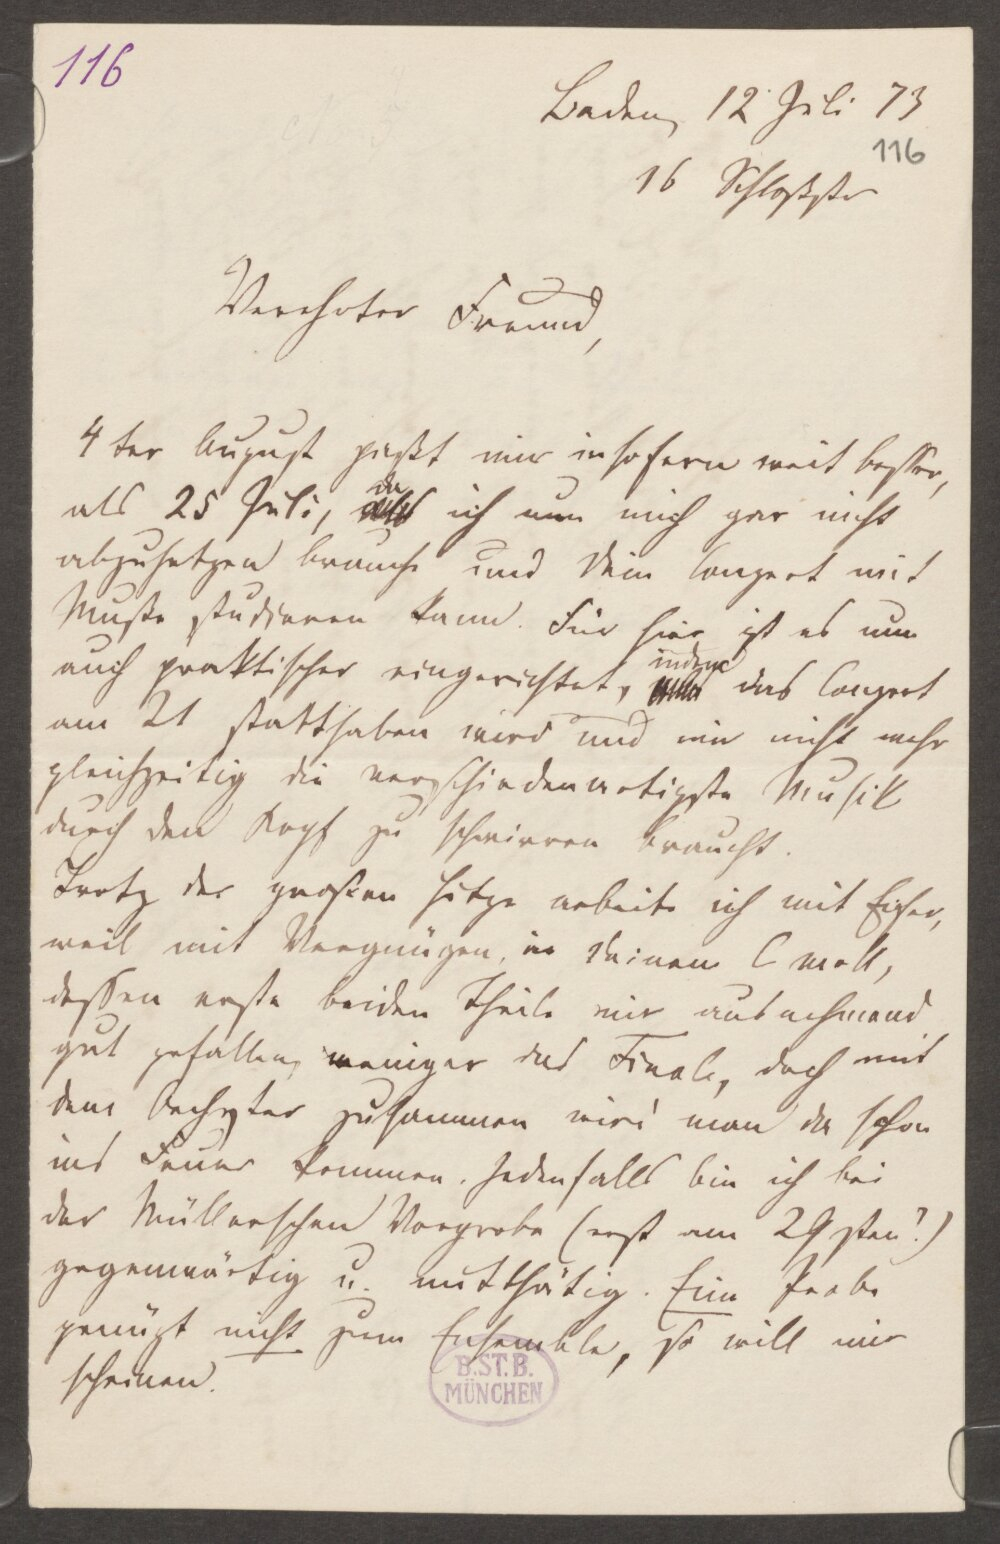 116
Baden, 12 Juli 73
116
16 Schloßstr
Verehrter Freund,
4ter August paßt mir insofern weit besser,
als 25 Juli, da ich nun mich gar nicht
abzuhetzen brauche und Dein Conzert mit
Muße studieren kann. Für hier ist es nun
auch praktischer eingerichtet, indem das Conzert
am 21 statthaben wird und mir nicht mehr
gleichzeitig die verschiedenartigste Musik
durch den Kopf zu schwirren braucht.
Trotz der großen Hitze arbeite ich mit Eifer,
weil mit Vergnügen, in Deinem C moll,
dessen erste beiden Theile mir ausnehmend
gut gefallen, weniger das Finale, doch mit
dem Orchester zusammen wird man da schon
ins Feuer kommen. Jedenfalls bin ich bei
der Müllerschen Vorprobe (erst am 29sten?)
gegenwärtig u. mitthätig. Eine Probe
genügt nicht zum Ensemble, so will mir
scheinen.
B.ST.B.
MÜNCHEN